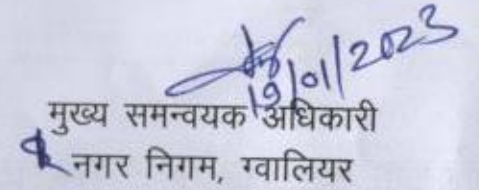 19/01/2023
मुख्य समन्वयक अधिकारी
नगर निगम, ग्वालियर